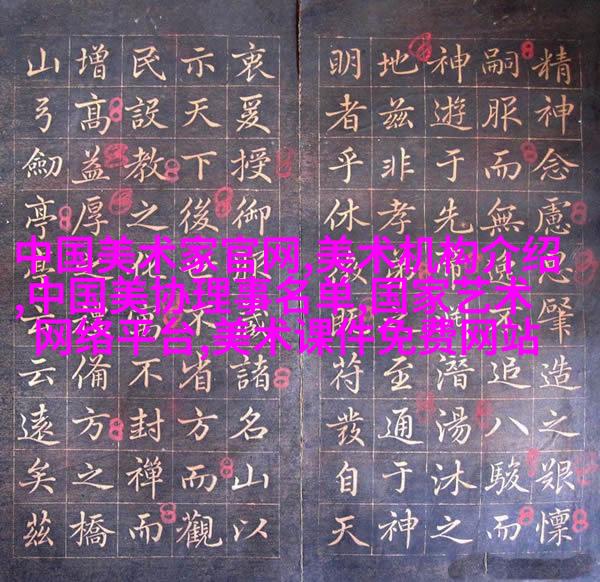 中国美术家官网,美术机构介绍
,中国美协理事名单,国家艺术
网络平台,美术课件免费网站
精神念慮忽肇造之艱懍
嗣服而無追八駿而
神遊于先潛湯沐之
地茲非孝弟至通于神
明者乎休符發自天
衷爰授御諸名山以
示天下後不省方而觀
民設教之化不封禪而
增高益厚備方之橋
山弓劍亭亭云云遠矣茲